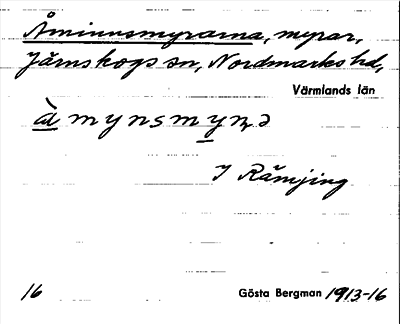 Åminnusmyrarna, myrar,
Järnskogs sn, Nordmarks hd,
Värmlands län
I Rämjing
16
Gösta Bergman 1913-16